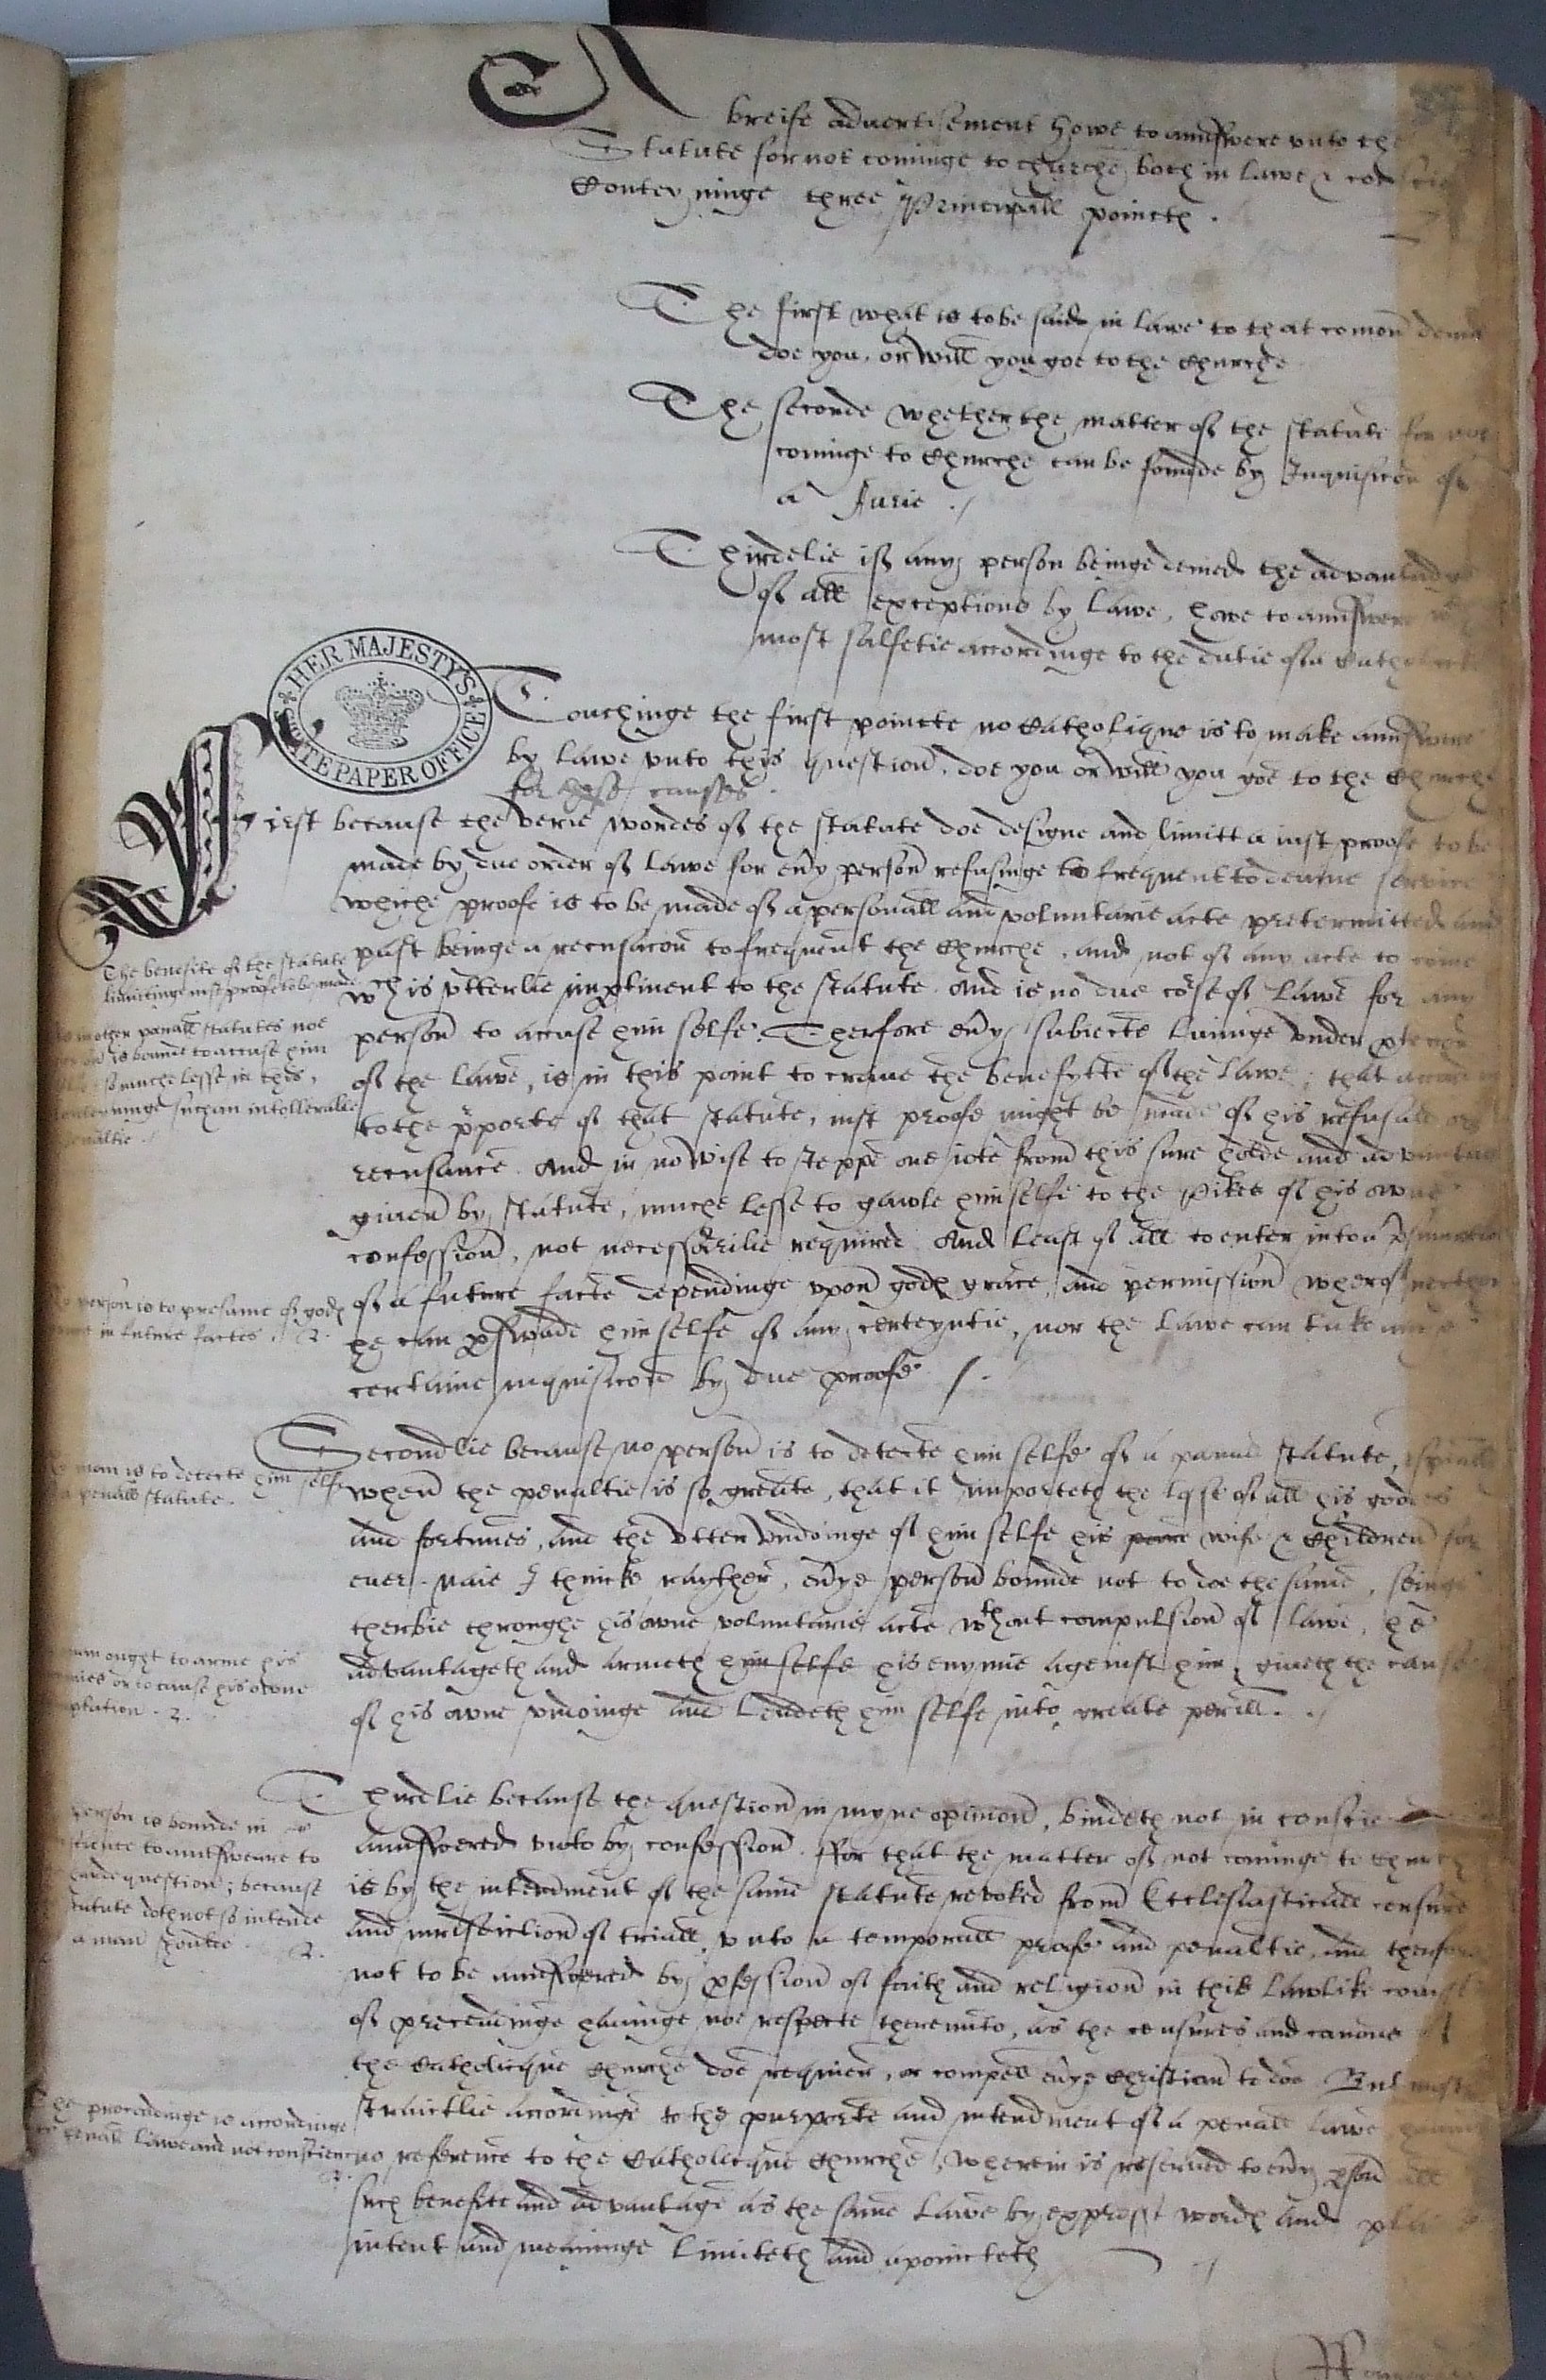 A breife aduertisement howe to annswere vnto the
Statute for not cominge to churche both in lawe &
Conteyninge three Principall poinctes.
The first what is to be saide in lawe to that comon
doe you, or will you goe to the Churche
The seconde whether the matter of the statute for not
cominge to Churche can be founde by Inquisicon of
a Jurie ./
Thirdelie if any person beinge denied the advantadge
of all exceptions by lawe, howe to annswere
most salfetie accordinge to the dutie of a Catholicke
HER MAJESTY'S STATE PAPER OFFICE
Touchinge the first pointte no Catholique is to make annswere
by lawe vnto this question. doe you or will you goe to the Churche
for these causes.
First because the verie wordes of the statute doe designe and limitt a iust proofe to be
made by due order of lawe for eny person refusinge to frequent to deuine service
whiche proofe is to be made of a personall and voluntarie acte pretermitted and
past beinge a recusacon to frequent the Churche. and not of any acte to come
wch is vtterlie impertinent to the statute. And is no due corse of Lawe for any
person to accuse him selfe. Therfore eny subiecte liuinge vnder
of the Lawe, is in this point to craue the benefytte of the Lawe; that
to the pporte of that statute, iust proofe might be made of his refusall or
recusance. And in no wise to steppe one iote from this sure holde and advantage
giuen by statute, muche lesse to gawle him selfe to the Pikes of his owne
confession, not necessarilie required. And least of all to enter into a
of a future facte dependinge vpon godes grace, and permission wherof neither
he can pswade him selfe of any certeyntie, nor the Lawe can take
certaine inquisicon by due proofe /.
The benefite of the statute
limitinge iust proofe to be made
other penall statutes noe
is bounde to accuse him
so muche lesse in this,
conteyninge such an intollerable
penaltie ./
person is to presume of godes
in future factes. 2.
Secondlie because no person is to detecte him selfe of a panall statute,
when the penaltie is so greate, that it importeth the losse of all his goodes
and fortunes, and the vtter vndoinge of him selfe his poore wife & Children for
euer. naie I thincke rayther, eny person bounde not to doe the same, seinge
therbie throughe his owne voluntarie acte wthout compulsion of lawe, he
advantageth and armeth him selfe his enymie ageinst him, giueth the cause
of his owne vndoinge and Lendeth him selfe into greate perill. ./
man is to detecte him selfe
penall statute.
man ought to arme his
or to cause his owne
2.
Thirdlie because the question in myne opinion, bindeth not in conscience
annswered vnto by confession. ffor that the matter of not cominge to Churche
is by the intendment of the same statute revoked from Ecclesiasticall censure
and iurisdiction of triall, vnto a temporall proofe and penaltie, and therfore
not to be annswered by pfession of faith and religion in this Lawlike course
of precedinge hauinge noe respecte therevnto, as the censures and canons of
the Catholicque Churche doe requier, or compell eny Christian to doe But
straictlie accordinge to the purporte and intendment of a penall Lawe,
no reference to the Catholicque Churche, wherein is reserued to eny pson all
such benefite and advantage as the same Lawe by exprest wordes and
intent and meaninge Limiteth and apointeth ./
person is bounde in
to annsweare to
question; because
statute doth not so intende
a man shoulde
2.
The procedinge is accordinge
penall Lawe and not conscience
2.